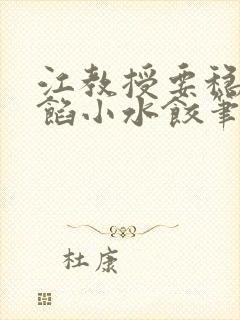 江教授要稳
馅小水饺笔
杜康